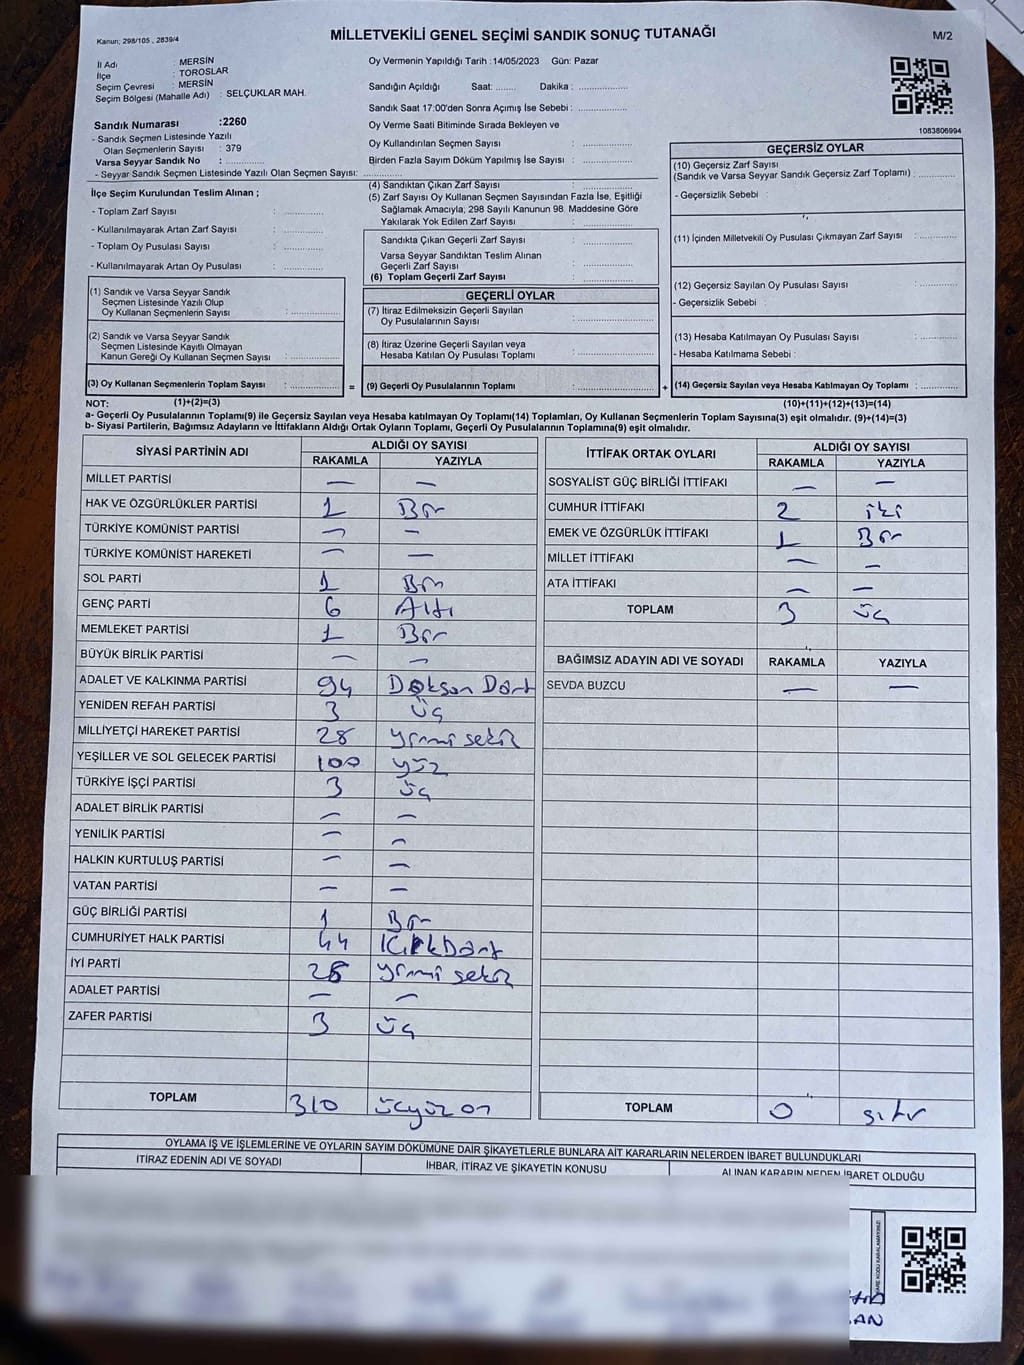 Kanun; 298/105 , 2839/4
MİLLETVEKİLİ GENEL SEÇİMİ SANDIK SONUÇ TUTANAĞI
M/2
İl Adı : MERSİN
İlçe : TOROSLAR
Seçim Çevresi : MERSİN
Seçim Bölgesi (Mahalle Adı) : SELÇUKLAR MAH.
Sandık Numarası :2260
- Sandık Seçmen Listesinde Yazılı
Olan Seçmenlerin Sayısı : 379
Varsa Seyyar Sandık No : ..............
- Seyyar Sandık Seçmen Listesinde Yazılı Olan Seçmen Sayısı: ..............
Oy Vermenin Yapıldığı Tarih :14/05/2023 Gün: Pazar
Sandığın Açıldığı Saat: ....... Dakika : ..............
Sandık Saat 17:00'den Sonra Açımış İse Sebebi : ..............
Oy Verme Saati Bitiminde Sırada Bekleyen ve
Oy Kullandırılan Seçmen Sayısı : ..............
Birden Fazla Sayım Döküm Yapılmış İse Sayısı : ..............
1083806994
İlçe Seçim Kurulundan Teslim Alınan ;
- Toplam Zarf Sayısı : ..............
- Kullanılmayarak Artan Zarf Sayısı : ..............
- Toplam Oy Pusulası Sayısı : ..............
- Kullanılmayarak Artan Oy Pusulası : ..............
(1) Sandık ve Varsa Seyyar Sandık
Seçmen Listesinde Yazılı Olup
Oy Kullanan Seçmenlerin Sayısı : ..............
(2) Sandık ve Varsa Seyyar Sandık
Seçmen Listesinde Kayıtlı Olmayan
Kanun Gereği Oy Kullanan Seçmen Sayısı : ..............
(3) Oy Kullanan Seçmenlerin Toplam Sayısı : ..............
(4) Sandıktan Çıkan Zarf Sayısı : ..............
(5) Zarf Sayısı Oy Kullanan Seçmen Sayısından Fazla İse, Eşitliği
Sağlamak Amacıyla, 298 Sayılı Kanunun 98. Maddesine Göre
Yakılarak Yok Edilen Zarf Sayısı : ..............
Sandıkta Çıkan Geçerli Zarf Sayısı : ..............
Varsa Seyyar Sandıktan Teslim Alınan
Geçerli Zarf Sayısı : ..............
(6) Toplam Geçerli Zarf Sayısı : ..............
GEÇERLİ OYLAR
(7) İtiraz Edilmeksizin Geçerli Sayılan
Oy Pusulalarının Sayısı : ..............
(8) İtiraz Üzerine Geçerli Sayılan veya
Hesaba Katılan Oy Pusulası Toplamı : ..............
= (9) Geçerli Oy Pusulalarının Toplamı : ..............
GEÇERSİZ OYLAR
(10) Geçersiz Zarf Sayısı
(Sandık ve Varsa Seyyar Sandık Geçersiz Zarf Toplamı) : ..............
- Geçersizlik Sebebi :
(11) İçinden Milletvekili Oy Pusulası Çıkmayan Zarf Sayısı : ..............
(12) Geçersiz Sayılan Oy Pusulası Sayısı : ..............
- Geçersizlik Sebebi :
(13) Hesaba Katılmayan Oy Pusulası Sayısı : ..............
- Hesaba Katılmama Sebebi :
+ (14) Geçersiz Sayılan veya Hesaba Katılmayan Oy Toplamı : ..............
NOT: (1)+(2)=(3) (10)+(11)+(12)+(13)=(14)
a- Geçerli Oy Pusulalarının Toplamı(9) ile Geçersiz Sayılan veya Hesaba katılmayan Oy Toplamı(14) Toplamları, Oy Kullanan Seçmenlerin Toplam Sayısına(3) eşit olmalıdır. (9)+(14)=(3)
b- Siyasi Partilerin, Bağımsız Adayların ve İttifakların Aldığı Ortak Oyların Toplamı, Geçerli Oy Pusulalarının Toplamına(9) eşit olmalıdır.
SİYASİ PARTİNİN ADI ALDIĞI OY SAYISI
RAKAMLA YAZIYLA
MİLLET PARTİSİ — —
HAK VE ÖZGÜRLÜKLER PARTİSİ 1 Bir
TÜRKİYE KOMÜNİST PARTİSİ — —
TÜRKİYE KOMÜNİST HAREKETİ — —
SOL PARTİ 1 Bir
GENÇ PARTİ 6 Altı
MEMLEKET PARTİSİ 1 Bir
BÜYÜK BİRLİK PARTİSİ — —
ADALET VE KALKINMA PARTİSİ 94 Doksan Dört
YENİDEN REFAH PARTİSİ 3 üç
MİLLİYETÇİ HAREKET PARTİSİ 28 yirmi sekiz
YEŞİLLER VE SOL GELECEK PARTİSİ 100 yüz
TÜRKİYE İŞÇİ PARTİSİ 3 üç
ADALET BİRLİK PARTİSİ — —
YENİLİK PARTİSİ — —
HALKIN KURTULUŞ PARTİSİ — —
VATAN PARTİSİ — —
GÜÇ BİRLİĞİ PARTİSİ 1 Bir
CUMHURİYET HALK PARTİSİ 44 KırkDört
İYİ PARTİ 28 yirmi sekiz
ADALET PARTİSİ — —
ZAFER PARTİSİ 3 üç
TOPLAM 310 üçyüz on
İTTİFAK ORTAK OYLARI ALDIĞI OY SAYISI
RAKAMLA YAZIYLA
SOSYALİST GÜÇ BİRLİĞİ İTTİFAKI — —
CUMHUR İTTİFAKI 2 iki
EMEK VE ÖZGÜRLÜK İTTİFAKI 1 Bir
MİLLET İTTİFAKI — —
ATA İTTİFAKI — —
TOPLAM 3 üç
BAĞIMSIZ ADAYIN ADI VE SOYADI RAKAMLA YAZIYLA
SEVDA BUZCU — —
TOPLAM 0 sıfır
OYLAMA İŞ VE İŞLEMLERİNE VE OYLARIN SAYIM DÖKÜMÜNE DAİR ŞİKAYETLERLE BUNLARA AİT KARARLARIN NELERDEN İBARET BULUNDUKLARI
İTİRAZ EDENİN ADI VE SOYADI İHBAR, İTİRAZ VE ŞİKAYETİN KONUSU ALINAN KARARIN NEDEN İBARET OLDUĞU
KARE KODU KARALAMAYINIZ!
AN